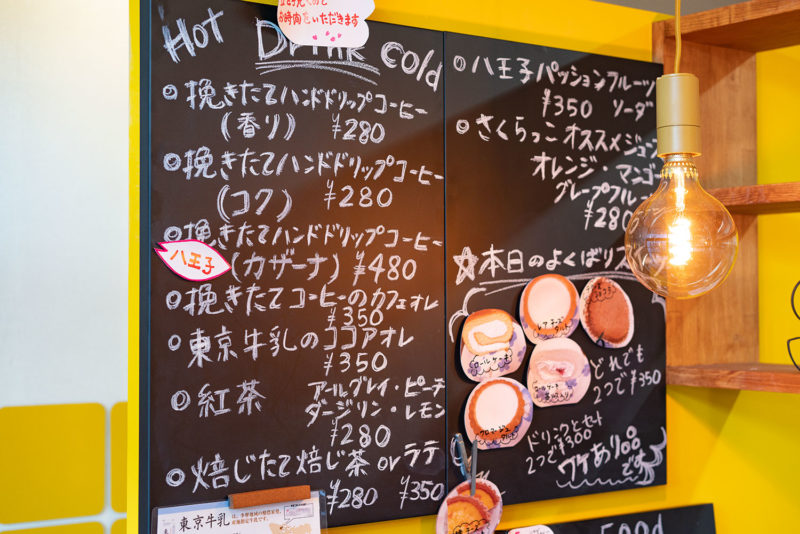 お時間をいただきます
Hot Drink Cold
◎挽きたてハンドドリップコーヒー
(香り) ¥280
◎挽きたてハンドドリップコーヒー
(コク) ¥280
◎挽きたてハンドドリップコーヒー
八王子
(カザーナ) ¥480
◎挽きたてコーヒーのカフェオレ
¥350
◎東京牛乳のココアオレ
¥350
◎紅茶 アールグレイ・ピーチ
ダージリン・レモン
¥280
◎焙じたて焙じ茶 or ラテ
¥280 ¥350
東京牛乳
◎八王子パッションフルーツ
¥350 ソーダ
◎さくらっこオススメジュ
オレンジ・マンゴー
グレープフル
¥280
☆本日のよくばり
ロールケーキ
どれでも
2つで¥350
ドリンクとセット
2つで¥300
ワケあり品
です
food